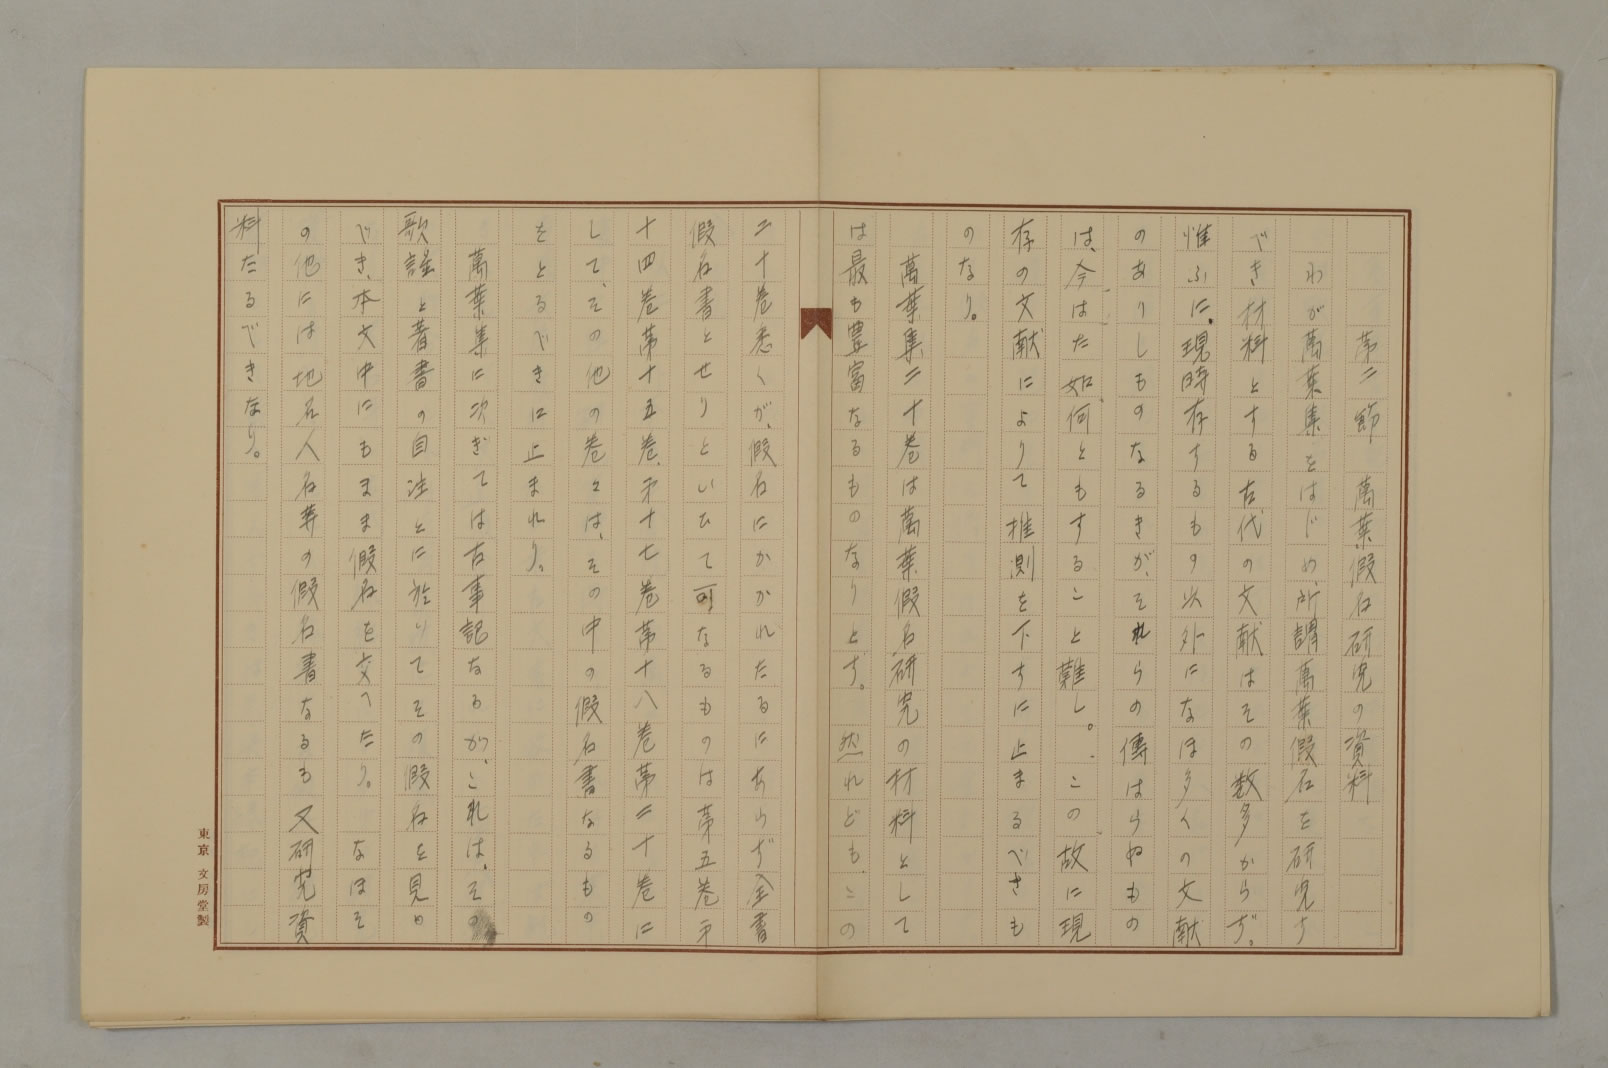 第二節　萬葉假名研究の資料
わが萬葉集をはじめ、所謂萬葉假名を研究す
べき材料とする古代の文献はその数多からず。
惟ふに、現時存するもの以外になほ多くの文献
のありしものなるきが、それらの傳はらぬもの
は、今はた如何ともすること難し。この故に現
存の文献によりて推測を下すに止まるべきも
のなり。
萬葉集二十巻は萬葉假名研究の材料として
は最も豊富なるものなりとす。然れども、この
二十巻悉くが、假名にかかれたるにあらず全書
假名書とせりといひて可なるものは第五巻㐧
十四巻第十五巻、㐧十七巻第十八巻第二十巻に
して、その他の巻々は、その中の假名書なるもの
をとるべきに止まれり。
萬葉集に次ぎては古事記なるが、これは、その
歌謡と著書の自注とに於いてその假名を見る
べき、本文中にもまま假名を交へたり。なほそ
の他には地名人名等の假名書なるも又研究資
料たるべきなり。
東京　文房堂製